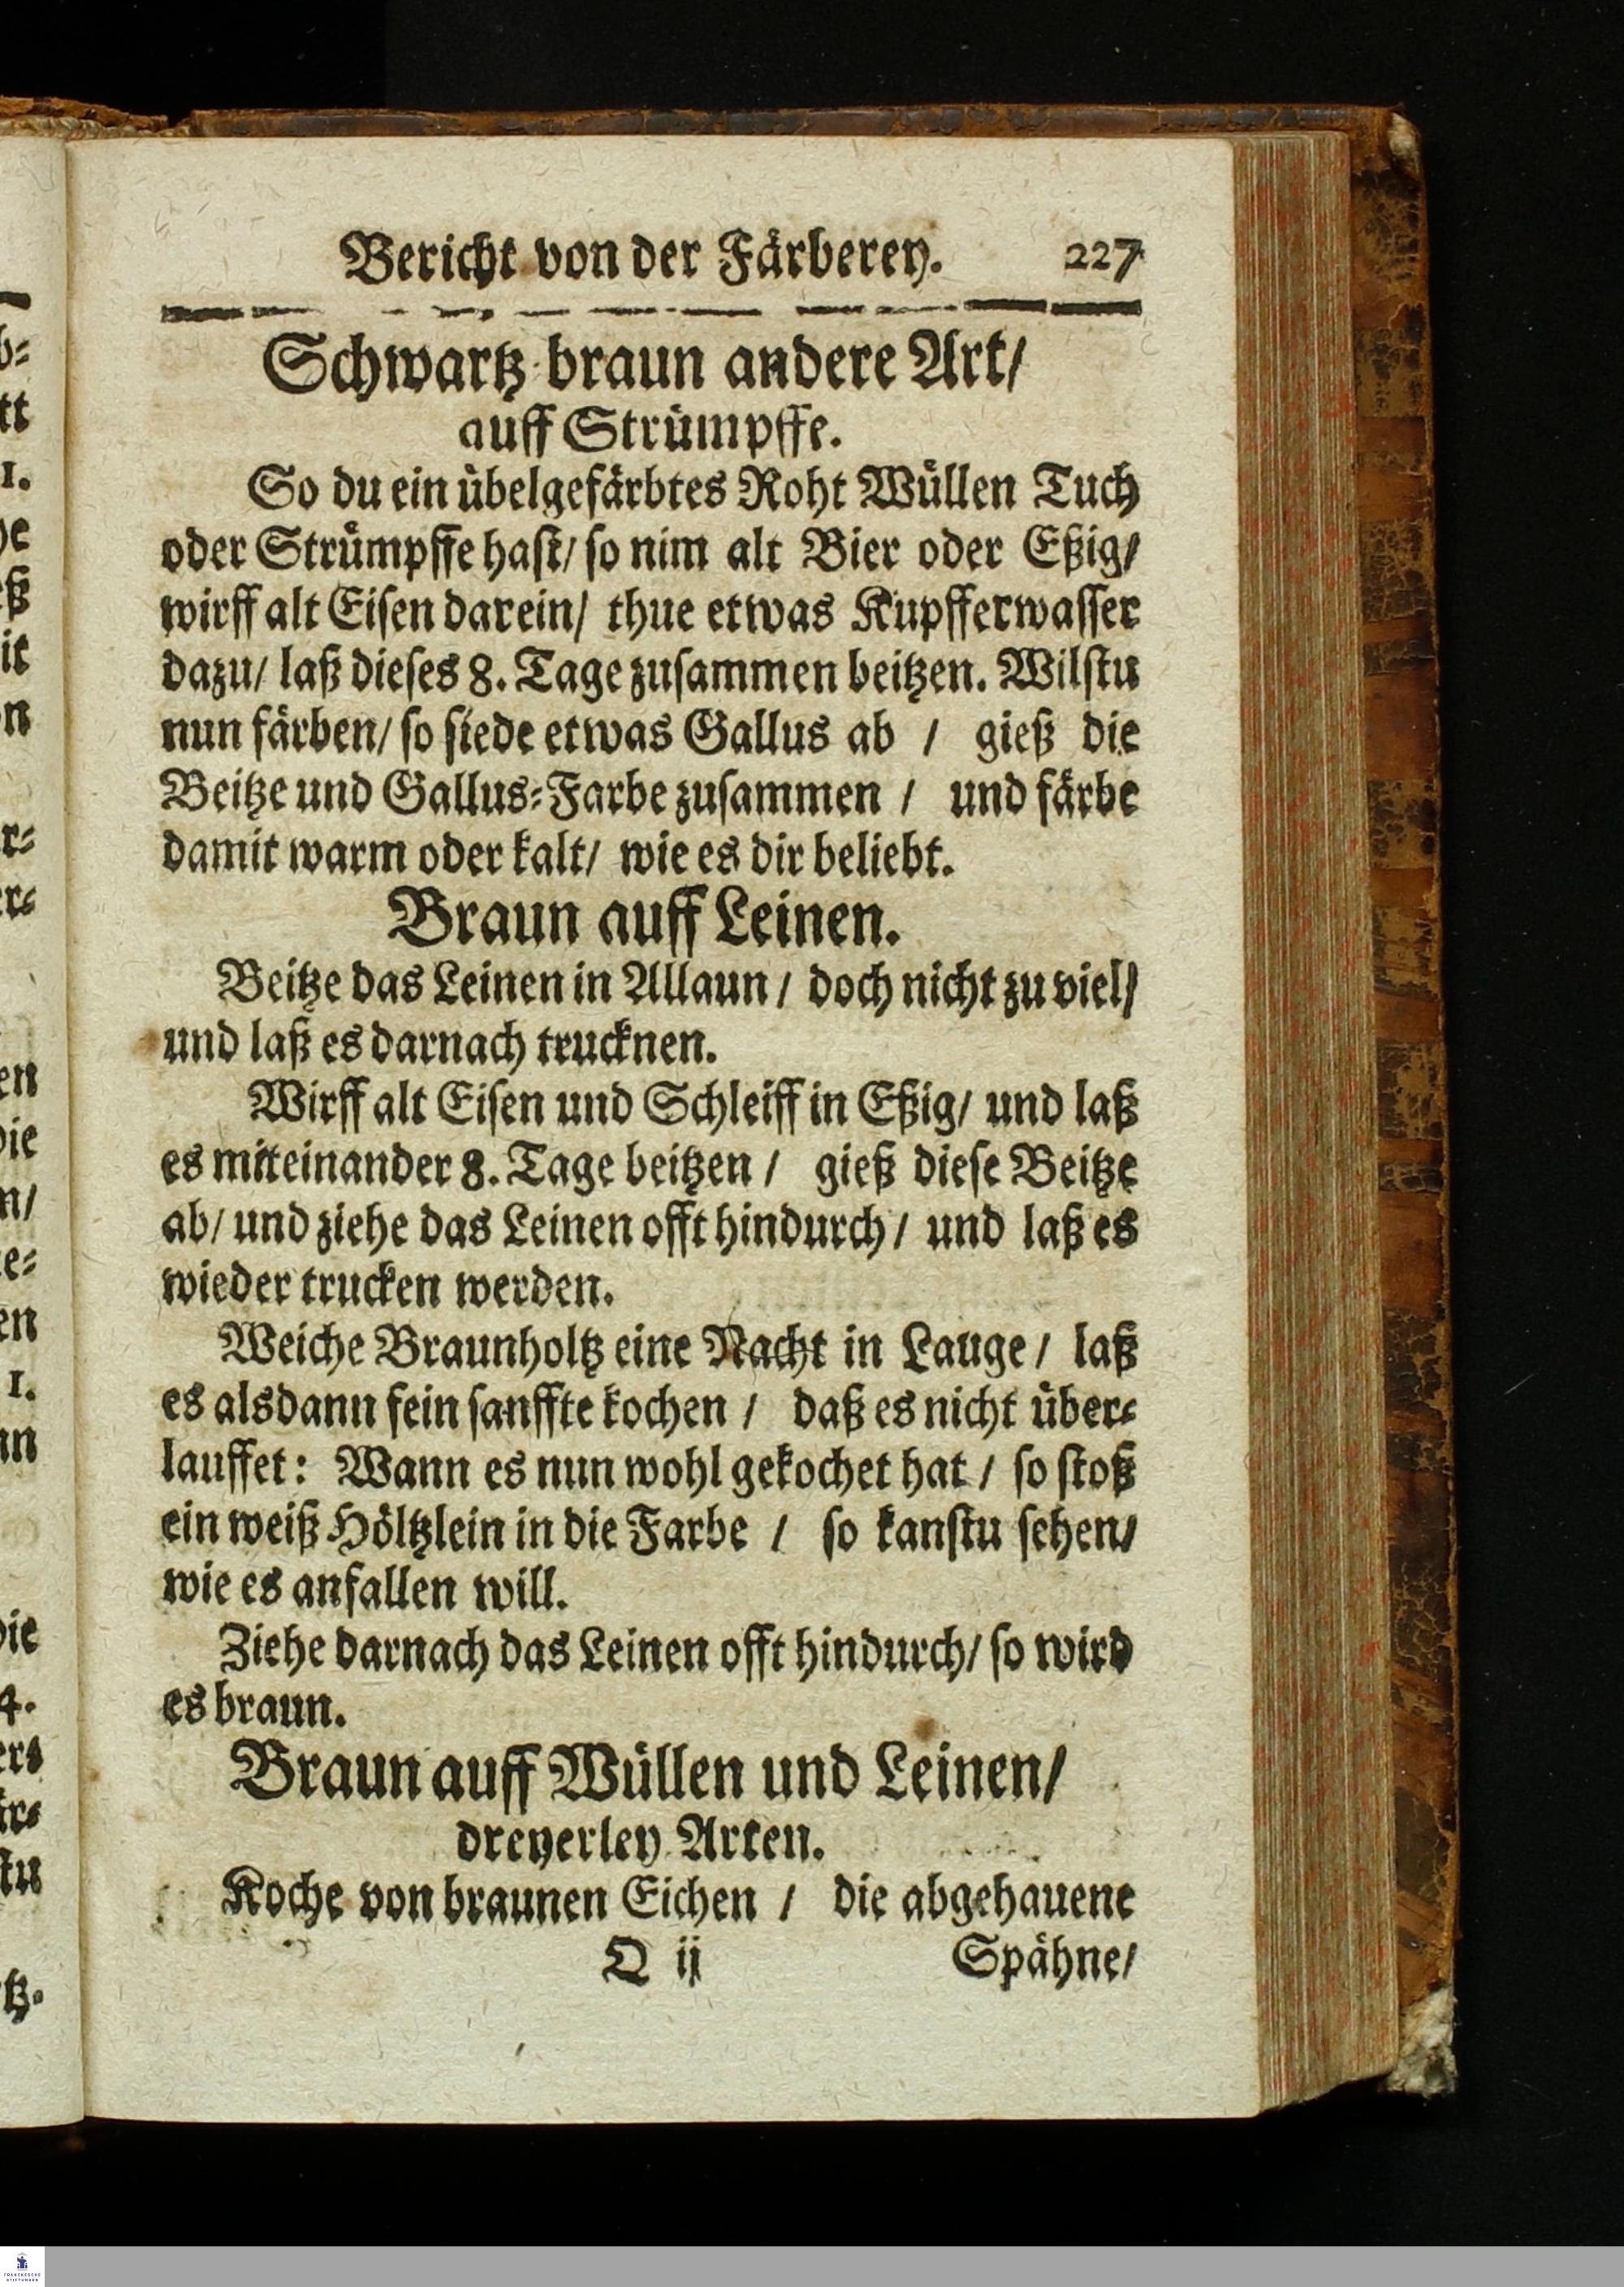 Bericht von der Färberey. 227
Schwartz braun andere Art/
auff Strümpffe.
So du ein übelgefärbtes Roht Wüllen Tuch
oder Strümpffe hast/ so nim alt Bier oder Eßig/
wirff alt Eisen darein/ thue etwas Kupfferwasser
dazu/ laß dieses 8. Tage zusammen beitzen. Wilstu
nun färben/ so siede etwas Gallus ab / gieß die
Beitze und Gallus-Farbe zusammen / und färbe
damit warm oder kalt/ wie es dir beliebt.
Braun auff Leinen.
Beitze das Leinen in Allaun / doch nicht zu viel/
und laß es darnach trucknen.
Wirff alt Eisen und Schleiff in Eßig/ und laß
es miteinander 8. Tage beitzen / gieß diese Beitze
ab/ und ziehe das Leinen offt hindurch / und laß es
wieder trucken werden.
Weiche Braunholtz eine Nacht in Lauge / laß
es alsdann fein sanffte kochen / daß es nicht über-
lauffet: Wann es nun wohl gekochet hat / so stoß
ein weiß Höltzlein in die Farbe / so kanstu sehen/
wie es anfallen will.
Ziehe darnach das Leinen offt hindurch/ so wird
es braun.
Braun auff Wüllen und Leinen/
dreyerley Arten.
Koche von braunen Eichen / die abgehauene
Q ij Spähne/
FRANCKESCHE
STIFTUNGEN